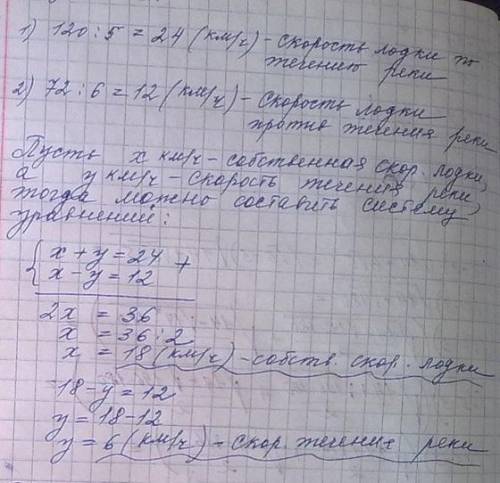 1) 120 : 5 = 24 (км/ч) - скорость лодки по
течению реки
2) 72 : 6 = 12 (км/ч) - скорость лодки
против течения реки
Пусть x км/ч - собственная скор. лодки,
а y км/ч - скорость течения реки,
тогда можно составить систему
уравнений:
{ x + y = 24 +
x - y = 12
2x = 36
x = 36 : 2
x = 18 (км/ч) - собств. скор. лодки
18 - y = 12
y = 18 - 12
y = 6 (км/ч) - скор. течения реки